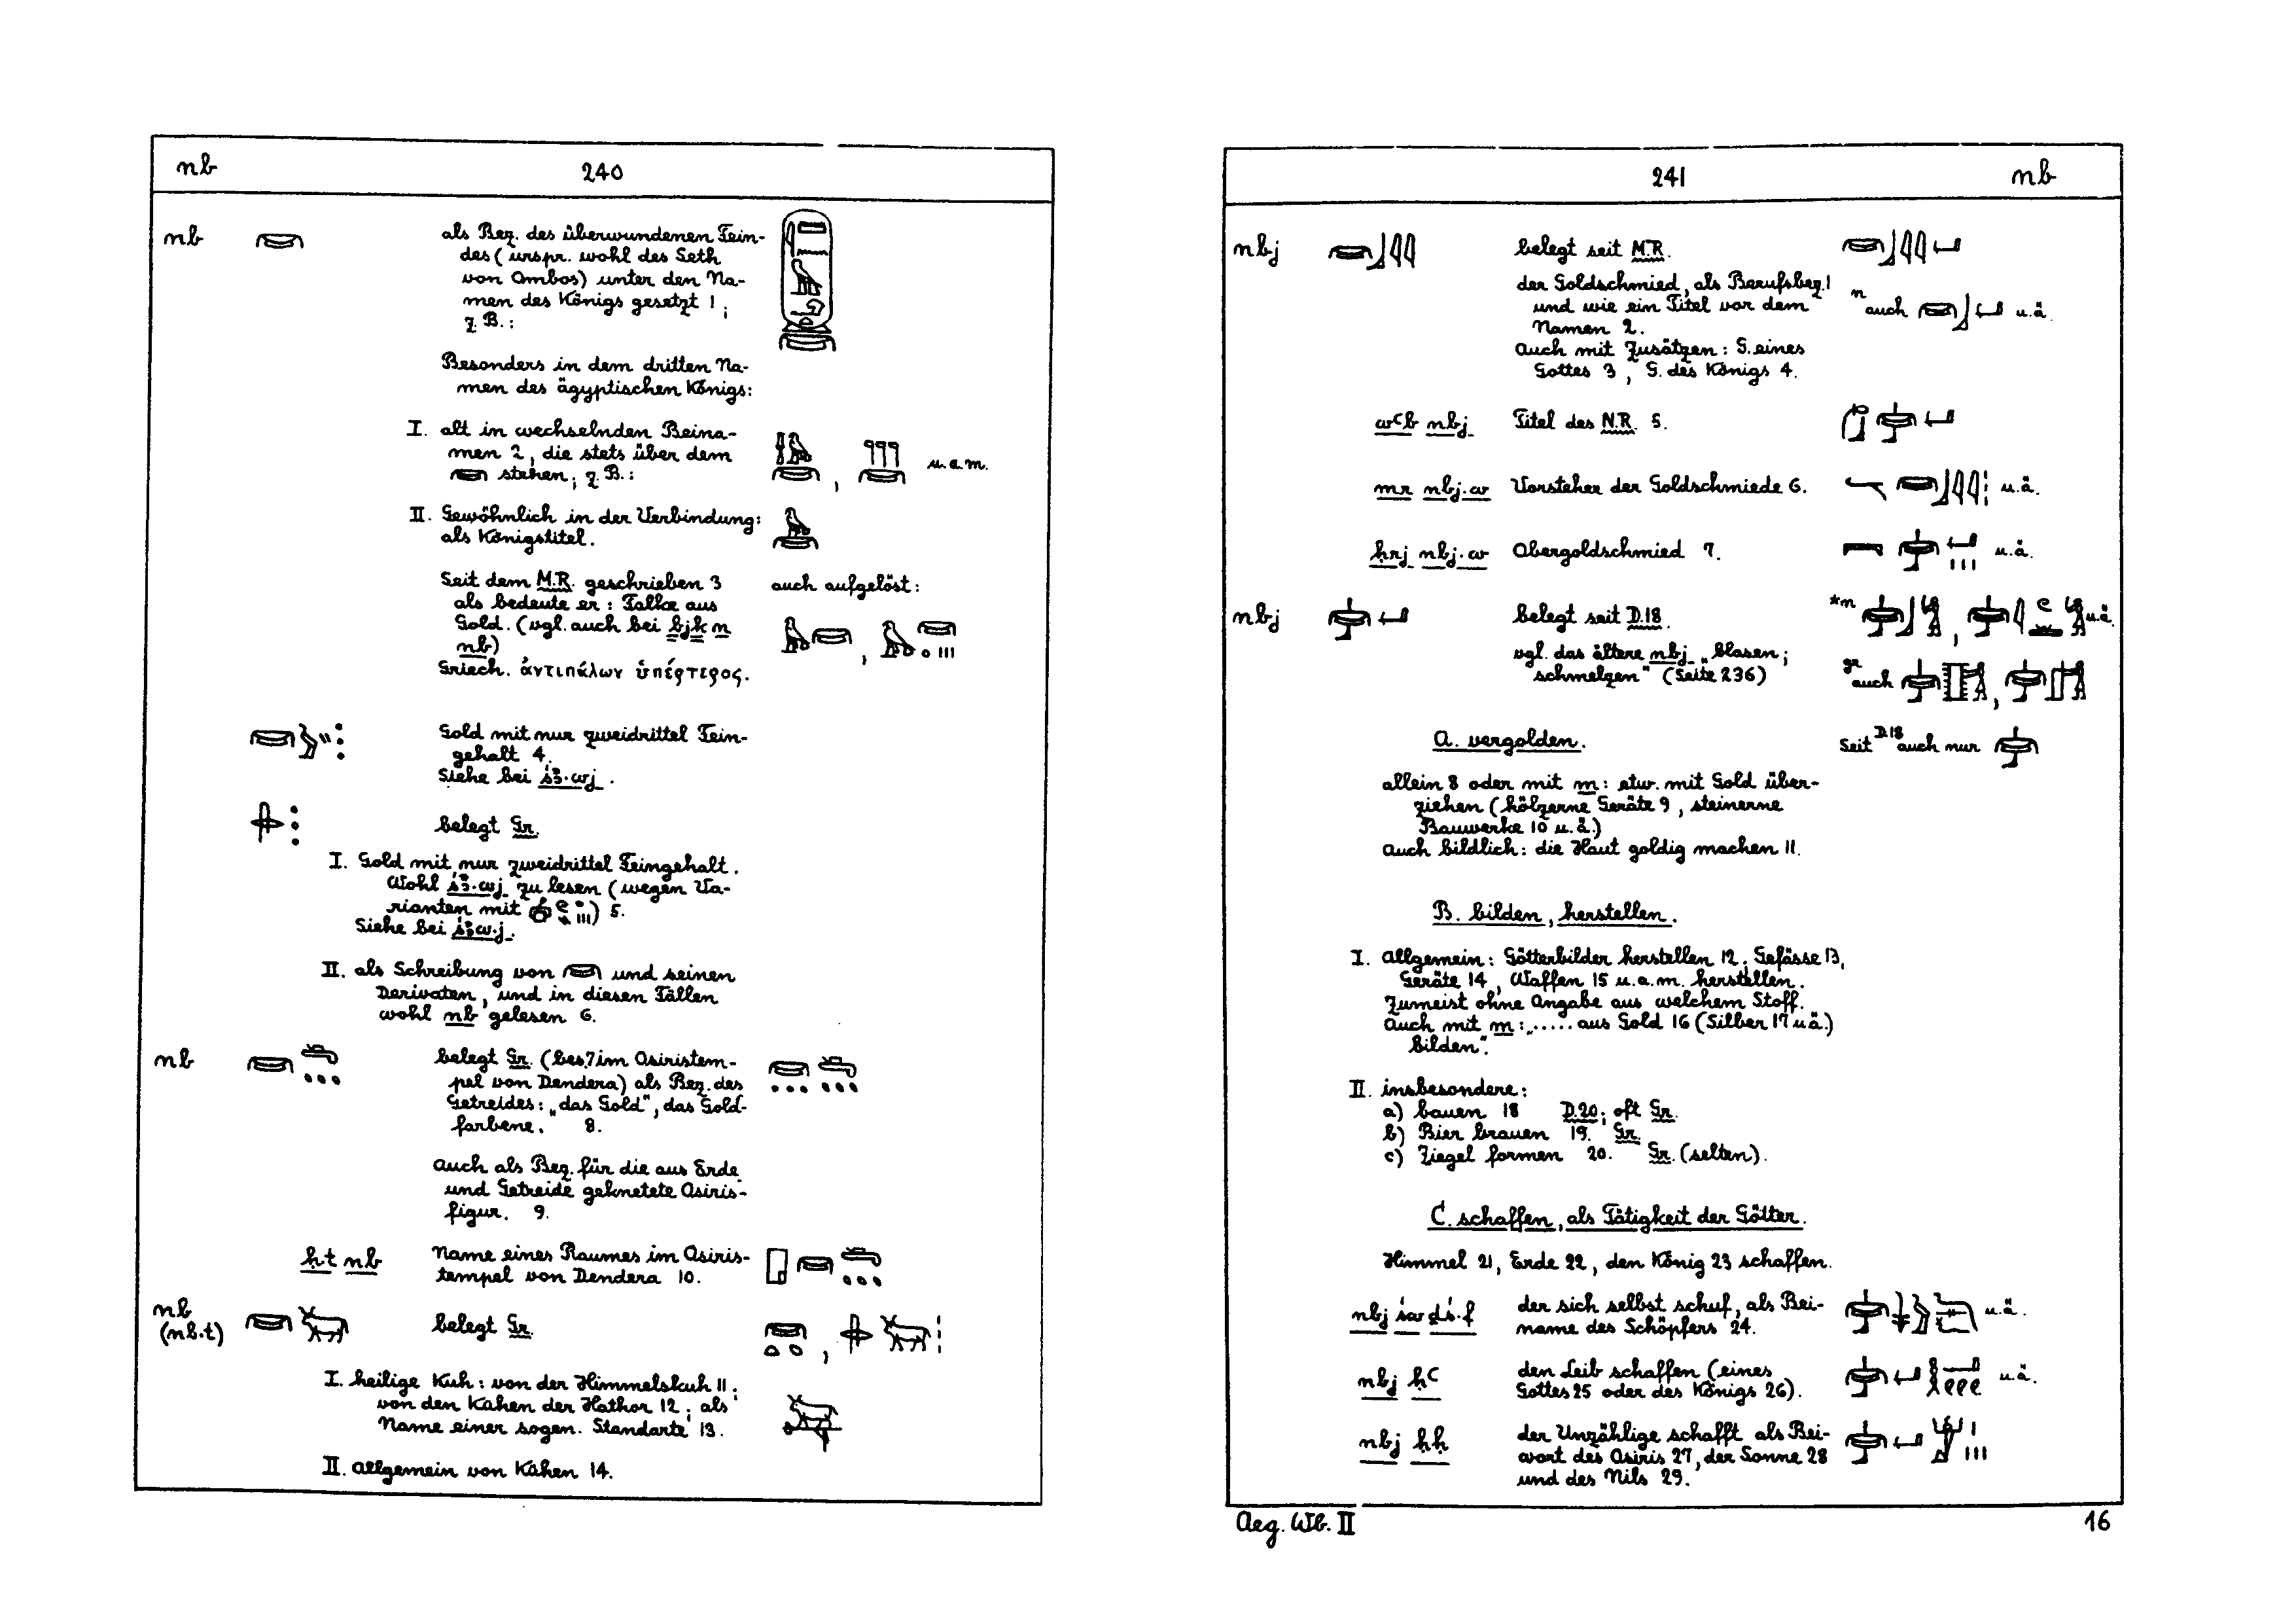 nb 240
nb als Bez. des überwundenen Fein-
des (urspr. wohl des Seth
von Ombos) unter den Na-
men des Königs gesetzt 1;
z. B.:
Besonders in dem dritten Na-
men des ägyptischen Königs:
I. alt in wechselnden Beina-
men 2, die stets über dem
stehen; z. B.: , u.a.m.
II. Gewöhnlich in der Verbindung:
als Königstitel.
Seit dem M.R. geschrieben 3 auch aufgelöst:
als bedeute er: Falke aus
Gold. (vgl. auch bei bjk n
nb)
Griech. ἀντιπάλων ὑπέρτερος.
Gold mit nur zweidrittel Fein-
gehalt 4.
Siehe bei ś3·wj.
belegt Gr.
I. Gold mit nur zweidrittel Feingehalt.
Wohl ś3·wj zu lesen (wegen Va-
rianten mit ) 5.
Siehe bei ś3w·j.
II. als Schreibung von und seinen
Derivaten, und in diesen Fällen
wohl nb gelesen 6.
nb belegt Gr. (bes.7 im Osiristem-
pel von Dendera) als Bez. des
Getreides: „das Gold", das Gold-
farbene. 8.
Auch als Bez. für die aus Erde
und Getreide geknetete Osiris-
figur. 9.
ḥt nb Name eines Raumes im Osiris-
tempel von Dendera 10.
nb
(nb·t) belegt Gr.
I. heilige Kuh: von der Himmelskuh 11;
von den Kühen der Hathor 12; als
Name einer sogen. Standarte 13.
II. allgemein von Kühen 14.
241 nb
nbj belegt seit M.R.
der Goldschmied, als Berufsbez. 1
und wie ein Titel vor dem n auch u.ä.
Namen 2.
Auch mit Zusätzen: G. eines
Gottes 3, G. des Königs 4.
wꜥb nbj Titel des N.R. 5.
mr nbj·w Vorsteher der Goldschmiede 6. u.ä.
ḥrj nbj·w Obergoldschmied 7. u.ä.
nbj belegt seit D.18. *m , u.ä.
vgl. das ältere nbj „blasen;
schmelzen" (Seite 236) gr auch ,
A. vergolden. Seit D.18 auch nur
allein 8 oder mit m: etw. mit Gold über-
ziehen (hölzerne Geräte 9, steinerne
Bauwerke 10 u.ä.)
Auch bildlich: die Haut goldig machen 11.
B. bilden, herstellen.
I. Allgemein: Götterbilder herstellen 12; Gefässe 13,
Geräte 14, Waffen 15 u.a.m. herstellen.
Zumeist ohne Angabe aus welchem Stoff.
Auch mit m: „..... aus Gold 16 (Silber 17 u.ä.)
bilden".
II. insbesondere:
a) bauen 18 D.20; oft Gr.
b) Bier brauen 19. Gr.
c) Ziegel formen 20. Gr. (selten).
C. schaffen, als Tätigkeit der Götter.
Himmel 21, Erde 22, den König 23 schaffen.
nbj św ḏś·f der sich selbst schuf, als Bei- u.ä.
name des Schöpfers 24.
nbj ḥꜥ den Leib schaffen (eines u.ä.
Gottes 25 oder des Königs 26).
nbj ḥḥ der Unzählige schafft als Bei-
wort des Osiris 27, der Sonne 28
und des Nils 29.
Aeg. Wb. II 16